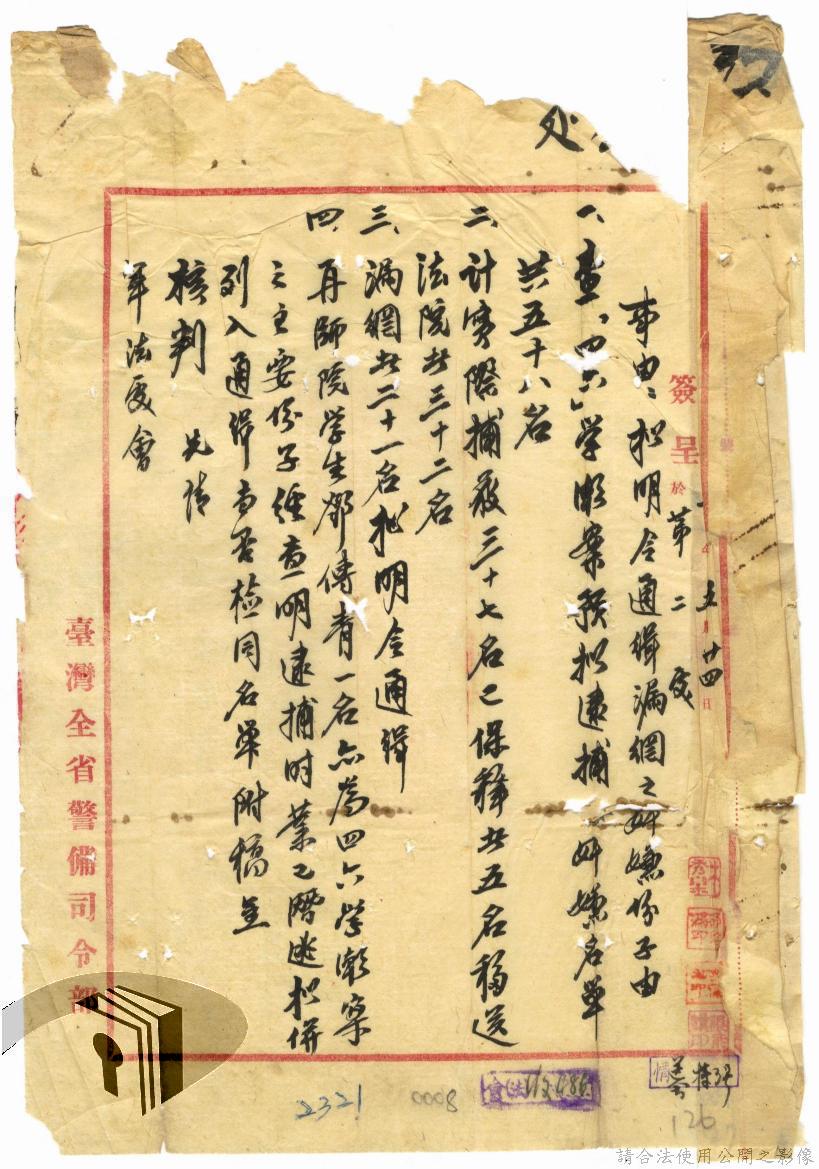 簽呈 於 五月廿四日
第二处
事由：擬明令通緝漏網之奸嫌份子由
一、查「四六」学潮案預擬逮捕奸嫌名單
共五十八名
二、計實際捕获三十七名已保釋共五名移送
法院共三十二名
三、漏網共二十一名擬明令通緝
四、再師院学生鄭傳青一名亦為四六学潮案
之主要份子經查明逮捕時業已潛逃擬併
列入通緝當否檢同名單附稿呈
核判 先請
軍法處會
臺灣全省警備司令部
2321
0008
126
請合法使用公開之影像